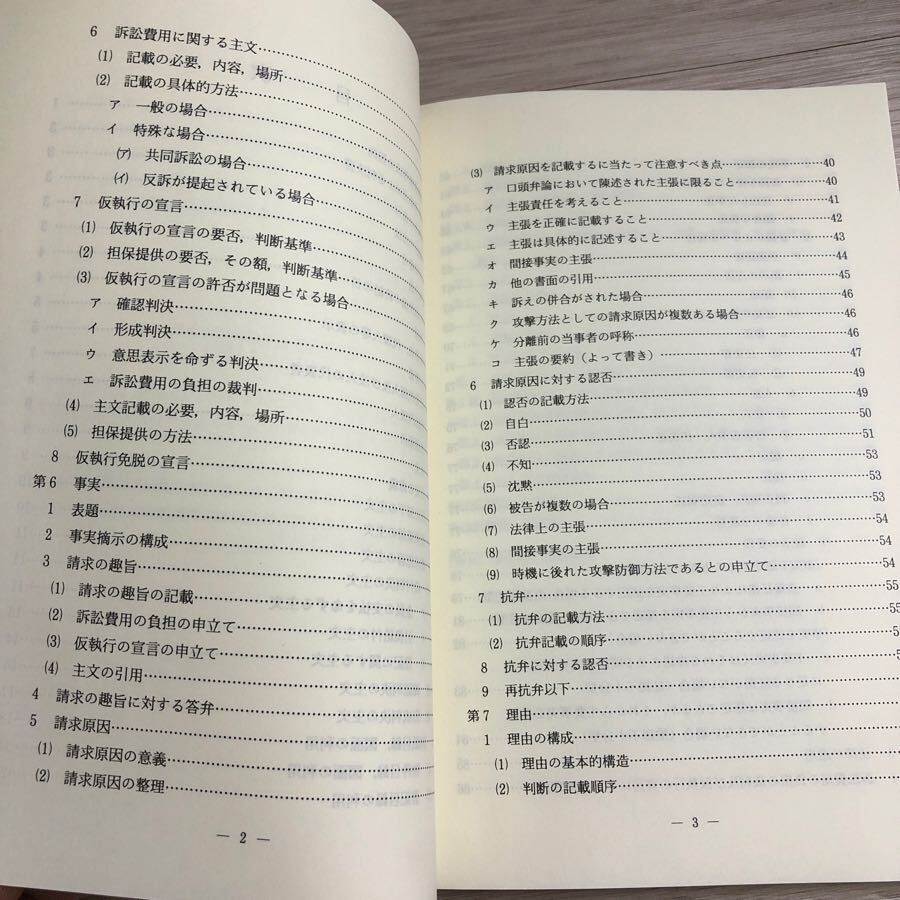 6 訴訟費用に関する主文……………
⑴ 記載の必要，内容，場所……………
⑵ 記載の具体的方法……………
ア 一般の場合……………
イ 特殊な場合……………
(ア) 共同訴訟の場合……………
(イ) 反訴が提起されている場合……………
7 仮執行の宣言……………
⑴ 仮執行の宣言の要否，判断基準……………
⑵ 担保提供の要否，その額，判断基準……………
⑶ 仮執行の宣言の許否が問題となる場合……………
ア 確認判決……………
イ 形成判決……………
ウ 意思表示を命ずる判決……………
エ 訴訟費用の負担の裁判……………
⑷ 主文記載の必要，内容，場所……………
⑸ 担保提供の方法……………
8 仮執行免脱の宣言……………
第6 事実……………
1 表題……………
2 事実摘示の構成……………
3 請求の趣旨……………
⑴ 請求の趣旨の記載……………
⑵ 訴訟費用の負担の申立て……………
⑶ 仮執行の宣言の申立て……………
⑷ 主文の引用……………
4 請求の趣旨に対する答弁……………
5 請求原因……………
⑴ 請求原因の意義……………
⑵ 請求原因の整理……………
― 2 ―
⑶ 請求原因を記載するに当たって注意すべき点……………40
ア 口頭弁論において陳述された主張に限ること……………40
イ 主張責任を考えること……………41
ウ 主張を正確に記載すること……………42
エ 主張は具体的に記述すること……………43
オ 間接事実の主張……………44
カ 他の書面の引用……………45
キ 訴えの併合がされた場合……………46
ク 攻撃方法としての請求原因が複数ある場合……………46
ケ 分離前の当事者の呼称……………46
コ 主張の要約（よって書き）……………47
6 請求原因に対する認否……………49
⑴ 認否の記載方法……………49
⑵ 自白……………50
⑶ 否認……………51
⑷ 不知……………53
⑸ 沈黙……………53
⑹ 被告が複数の場合……………53
⑺ 法律上の主張……………54
⑻ 間接事実の主張……………54
⑼ 時機に後れた攻撃防御方法であるとの申立て……………54
7 抗弁……………55
⑴ 抗弁の記載方法……………55
⑵ 抗弁記載の順序……………
8 抗弁に対する認否……………
9 再抗弁以下……………
第7 理由……………
1 理由の構成……………
⑴ 理由の基本的構造……………
⑵ 判断の記載順序……………
― 3 ―